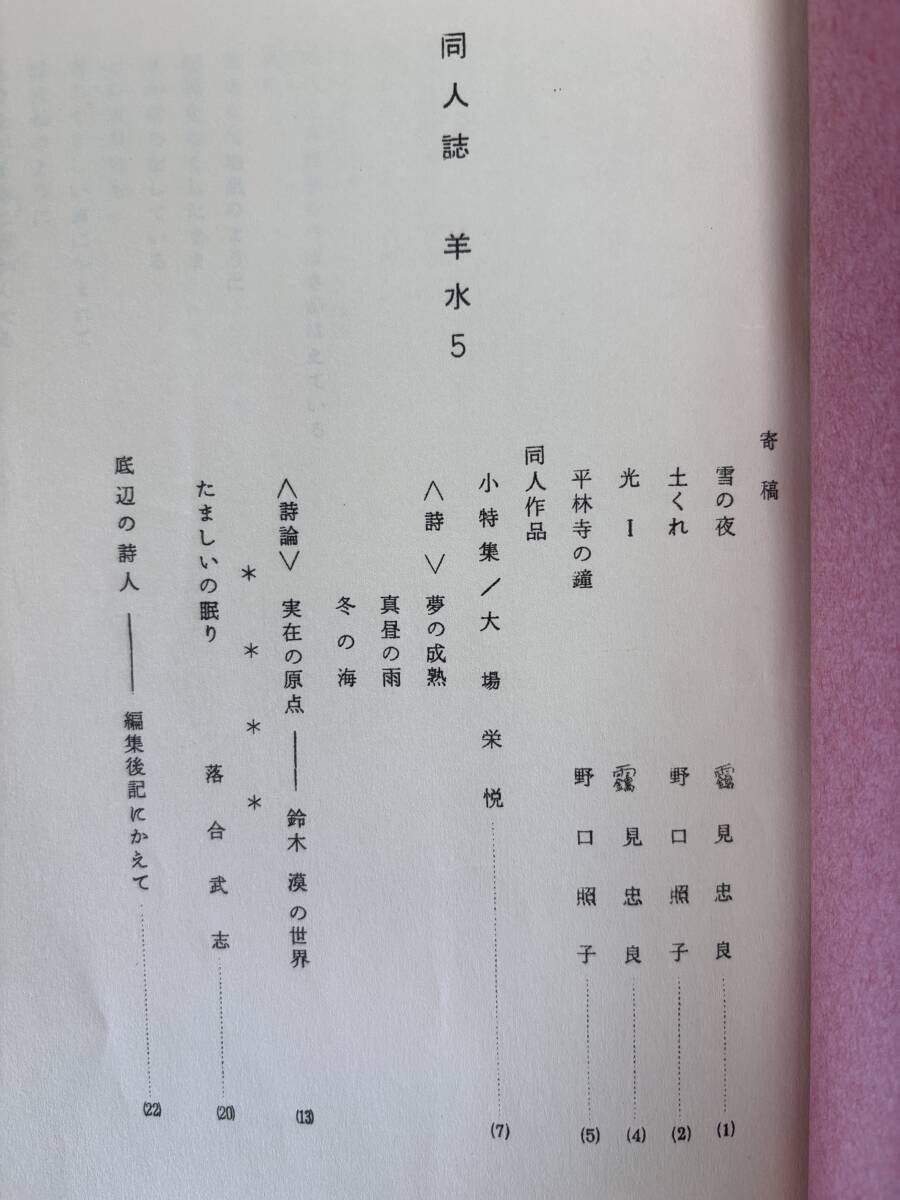 同人誌 羊水5
寄稿
雪の夜 靏見忠良 (1)
土くれ 野口照子 (2)
光 I 靏見忠良 (4)
平林寺の鐘 野口照子 (5)
同人作品
小特集/大場栄悦 (7)
<詩> 夢の成熟
真昼の雨
冬の海
<詩論> 実在の原点――鈴木漠の世界 (13)
* * * *
たましいの眠り 落合武志 (20)
底辺の詩人――編集後記にかえて (22)